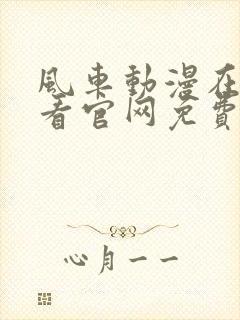 風車動漫在
看官网免費
心月一一